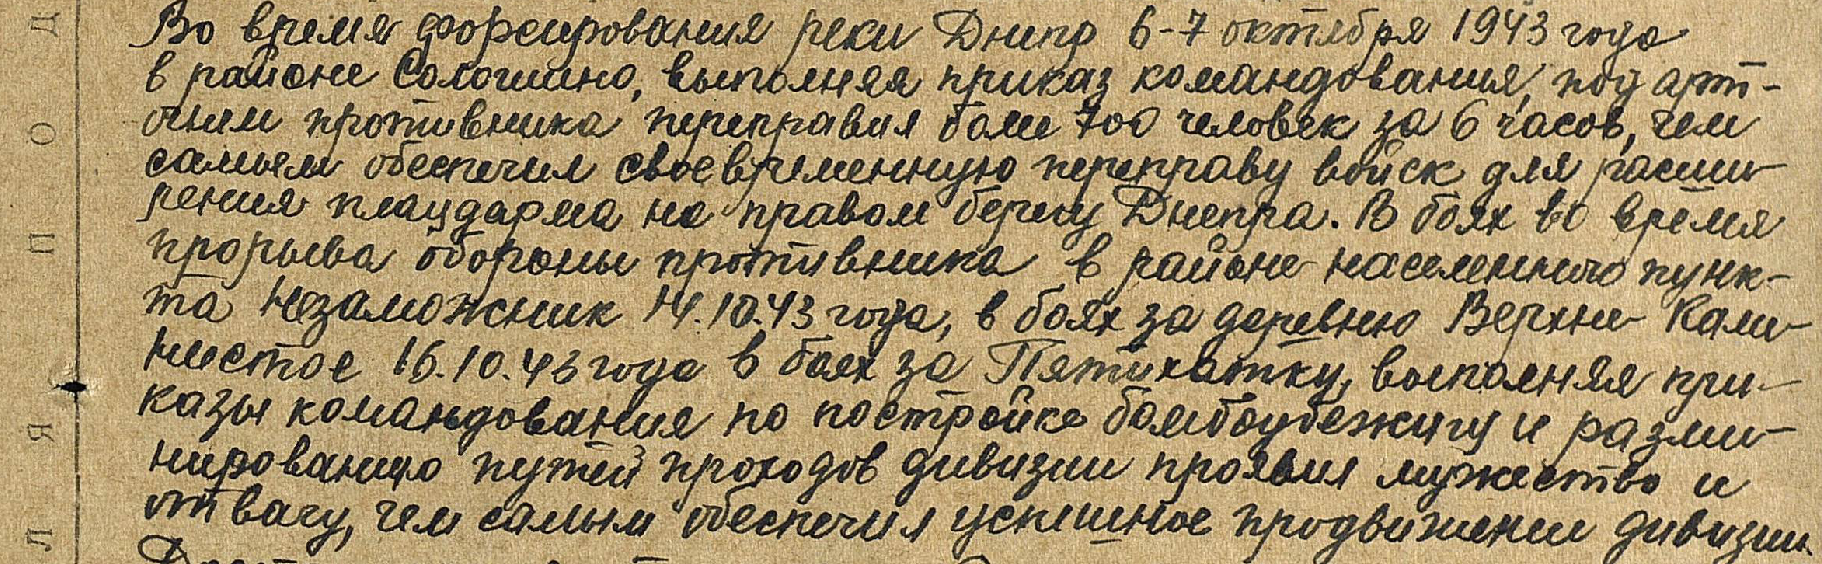 Во время форсирования реки Днепр 6-7 октября 1943 года
в районе Солошино, выполняя приказ командования, под арт-
огнем противника переправил более 700 человек за 6 часов, чем
самым обеспечил своевременную переправу войск для расши-
рения плацдарма на правом берегу Днепра. В боях во время
прорыва обороны противника в районе населенного пунк-
та Незаможник 14.10.43 года, в боях за деревню Верхне Каме-
нистое 16.10.43 года в боях за Пятихатку, выполняя при-
казы командования по постройке бомбоубежищ и разми-
нированию путей проходов дивизии проявил мужество и
отвагу, чем самым обеспечил успешное продвижение дивизии.
П О Д
Л Я